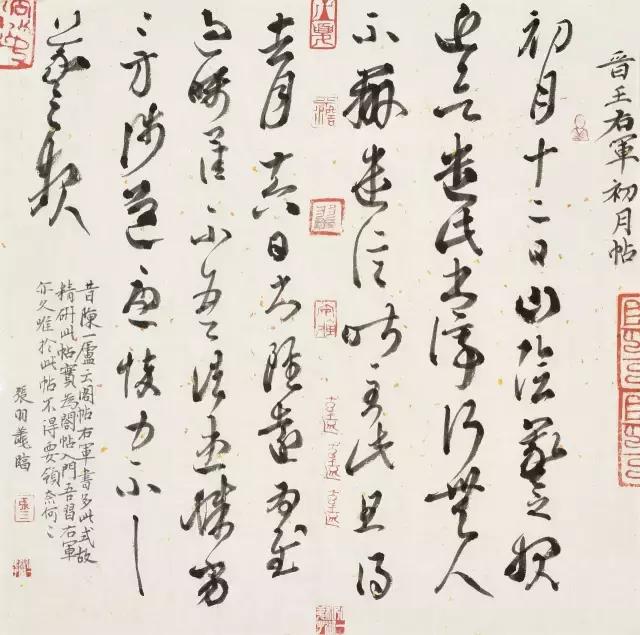 晋王右軍初月帖
初月十二日山陰羲之報
近欲遣此書停行無人
不辦遣信昨至此且得
去月十六日書雖遠為慰
過囑卿佳不吾諸患殊劣
〻方涉道憂悴力不
羲之報
昔陳一廬云閣帖右軍書多此式故
精研此帖實為閣帖入門吾習右軍
亦久唯於此帖不得要領奈何〻
張羽臨